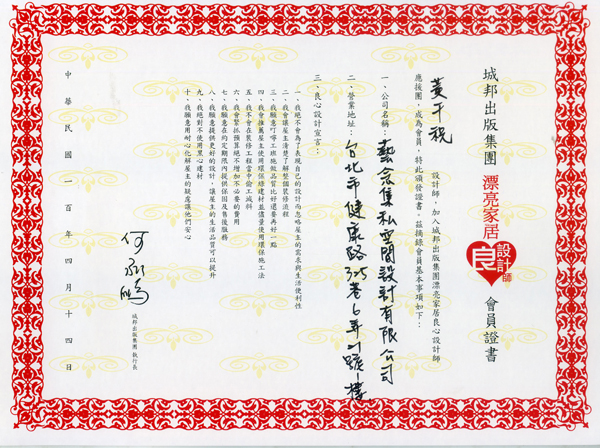 城邦出版集團 漂亮家居 良設計師 會員證書
黃千祝 設計師,加入城邦出版集團漂亮家居良心設計師
應援團,成為會員,特此頒發證書。茲摘錄會員基本事項如下:
一、公司名稱:藝念集私空間設計有限公司
二、營業地址:台北市健康路325巷6弄21號1樓
三、良心設計宣言:
一、我絕不會為了表現自己的設計而忽略屋主的需求與生活便利性
二、我會讓屋主清楚了解整個裝修流程
三、我願意叮嚀工班施做品質比好還要再好一點
四、我會推薦屋主使用環保綠建材並儘量使用環保施工法
五、我不會在裝修工程當中偷工減料
六、我會緊抓預算絕不增加不必要的費用
七、我願意在約定期限內提供保固及售後服務
八、我願意提供更好的設計,讓屋主的生活品質可以提升
九、我絕對不使用黑心建材
十、我願意用耐心化解屋主的疑慮讓他們安心
何飛鵬
城邦出版集團 執行長
中華民國一百年四月十四日